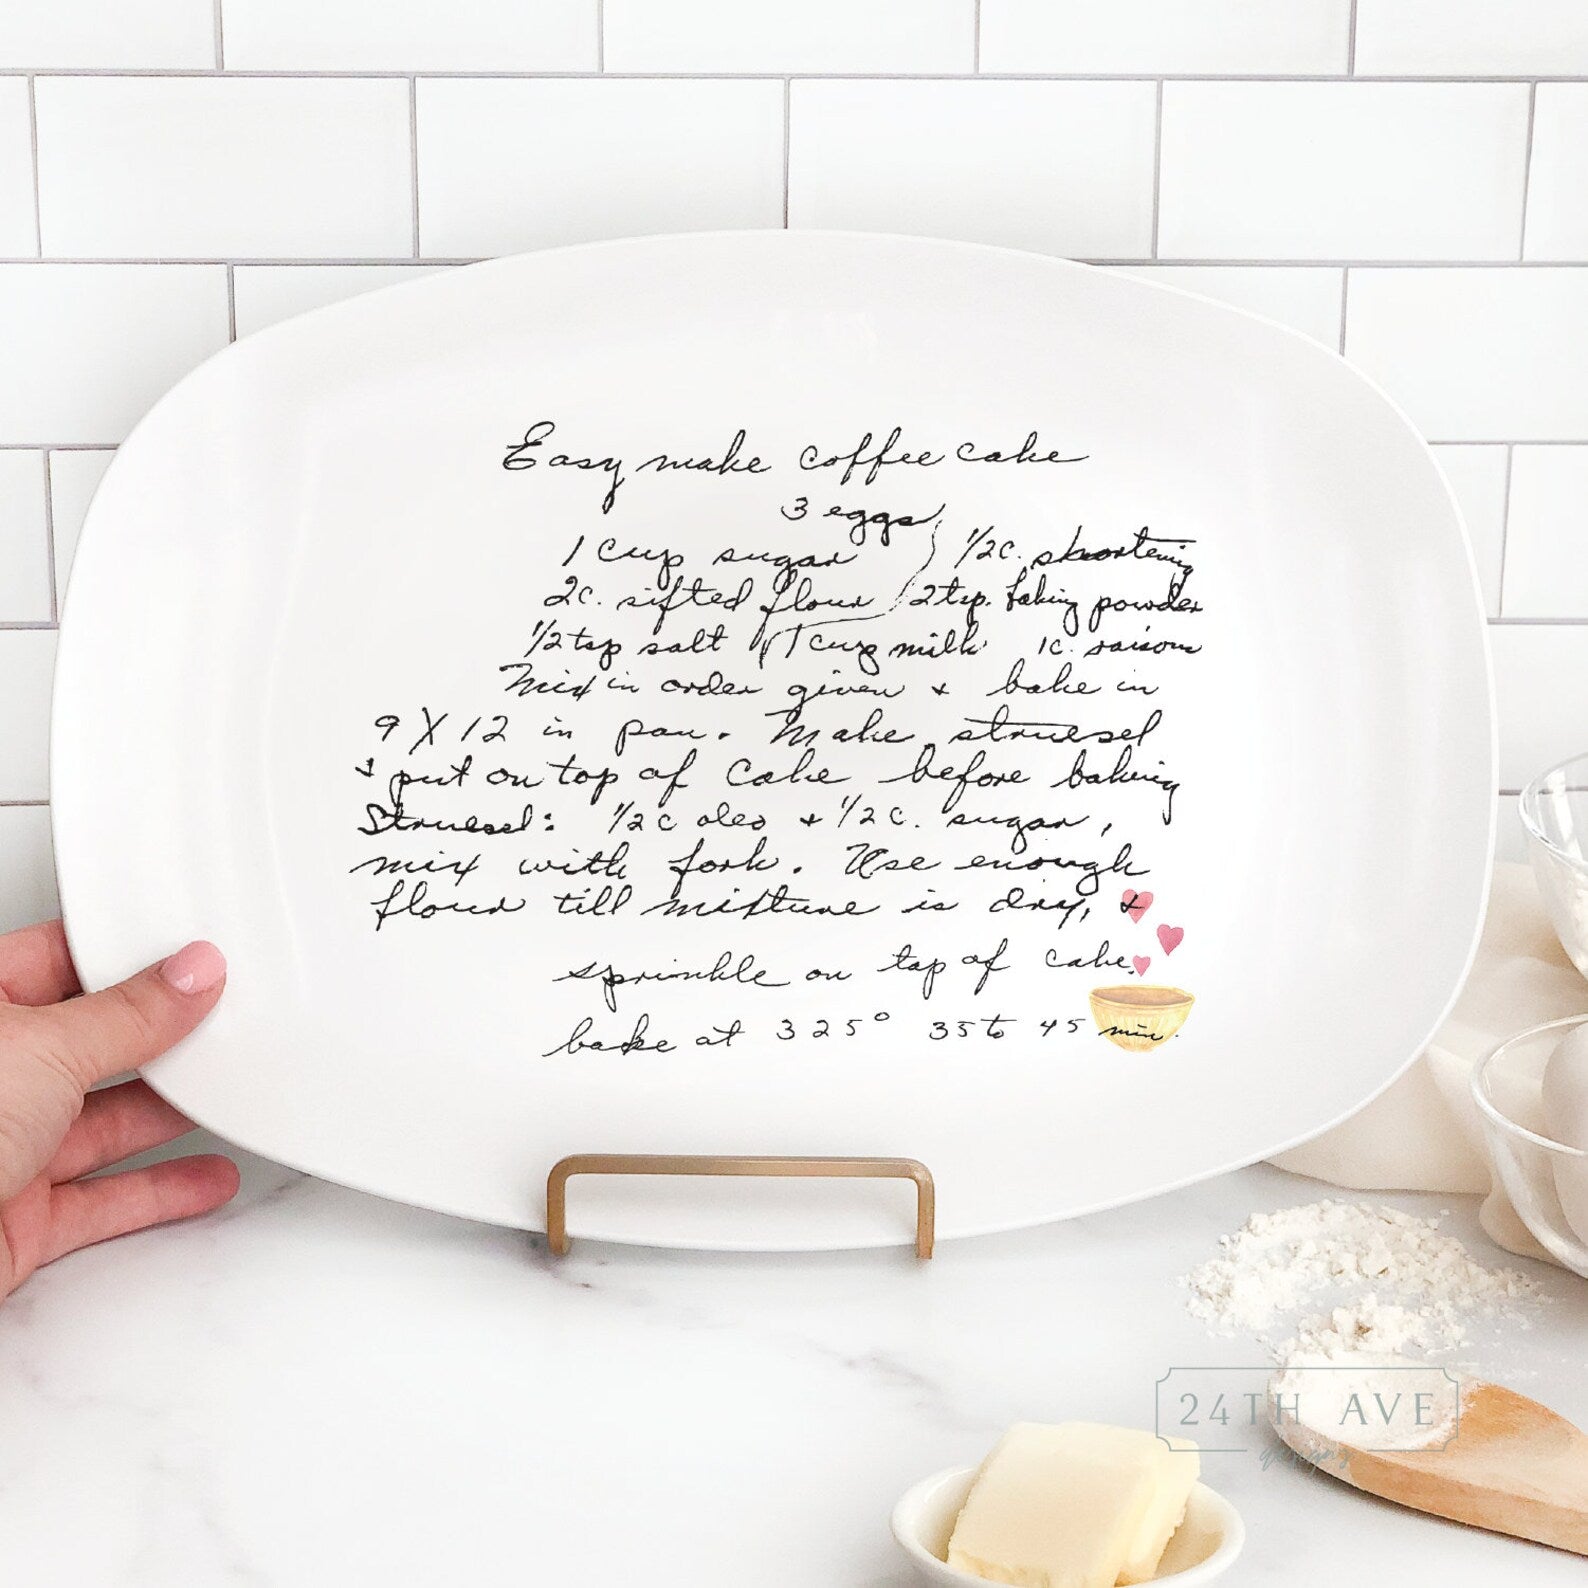 Easy make coffee cake
3 eggs
1 cup sugar 1/2 c. shortening
2c. sifted flour 2 tsp. baking powder
1/2 tsp salt 1 cup milk 1c. raisons
Mix in order given + bake in
9 X 12 in pan. Make struesel
+ put on top of cake before baking
Struesel: 1/2 c oleo + 1/2 c. sugar,
mix with fork. Use enough
flour till mixture is dry, +
sprinkle on top of cake.
bake at 325° 35 to 45 min.
24TH AVE
designs